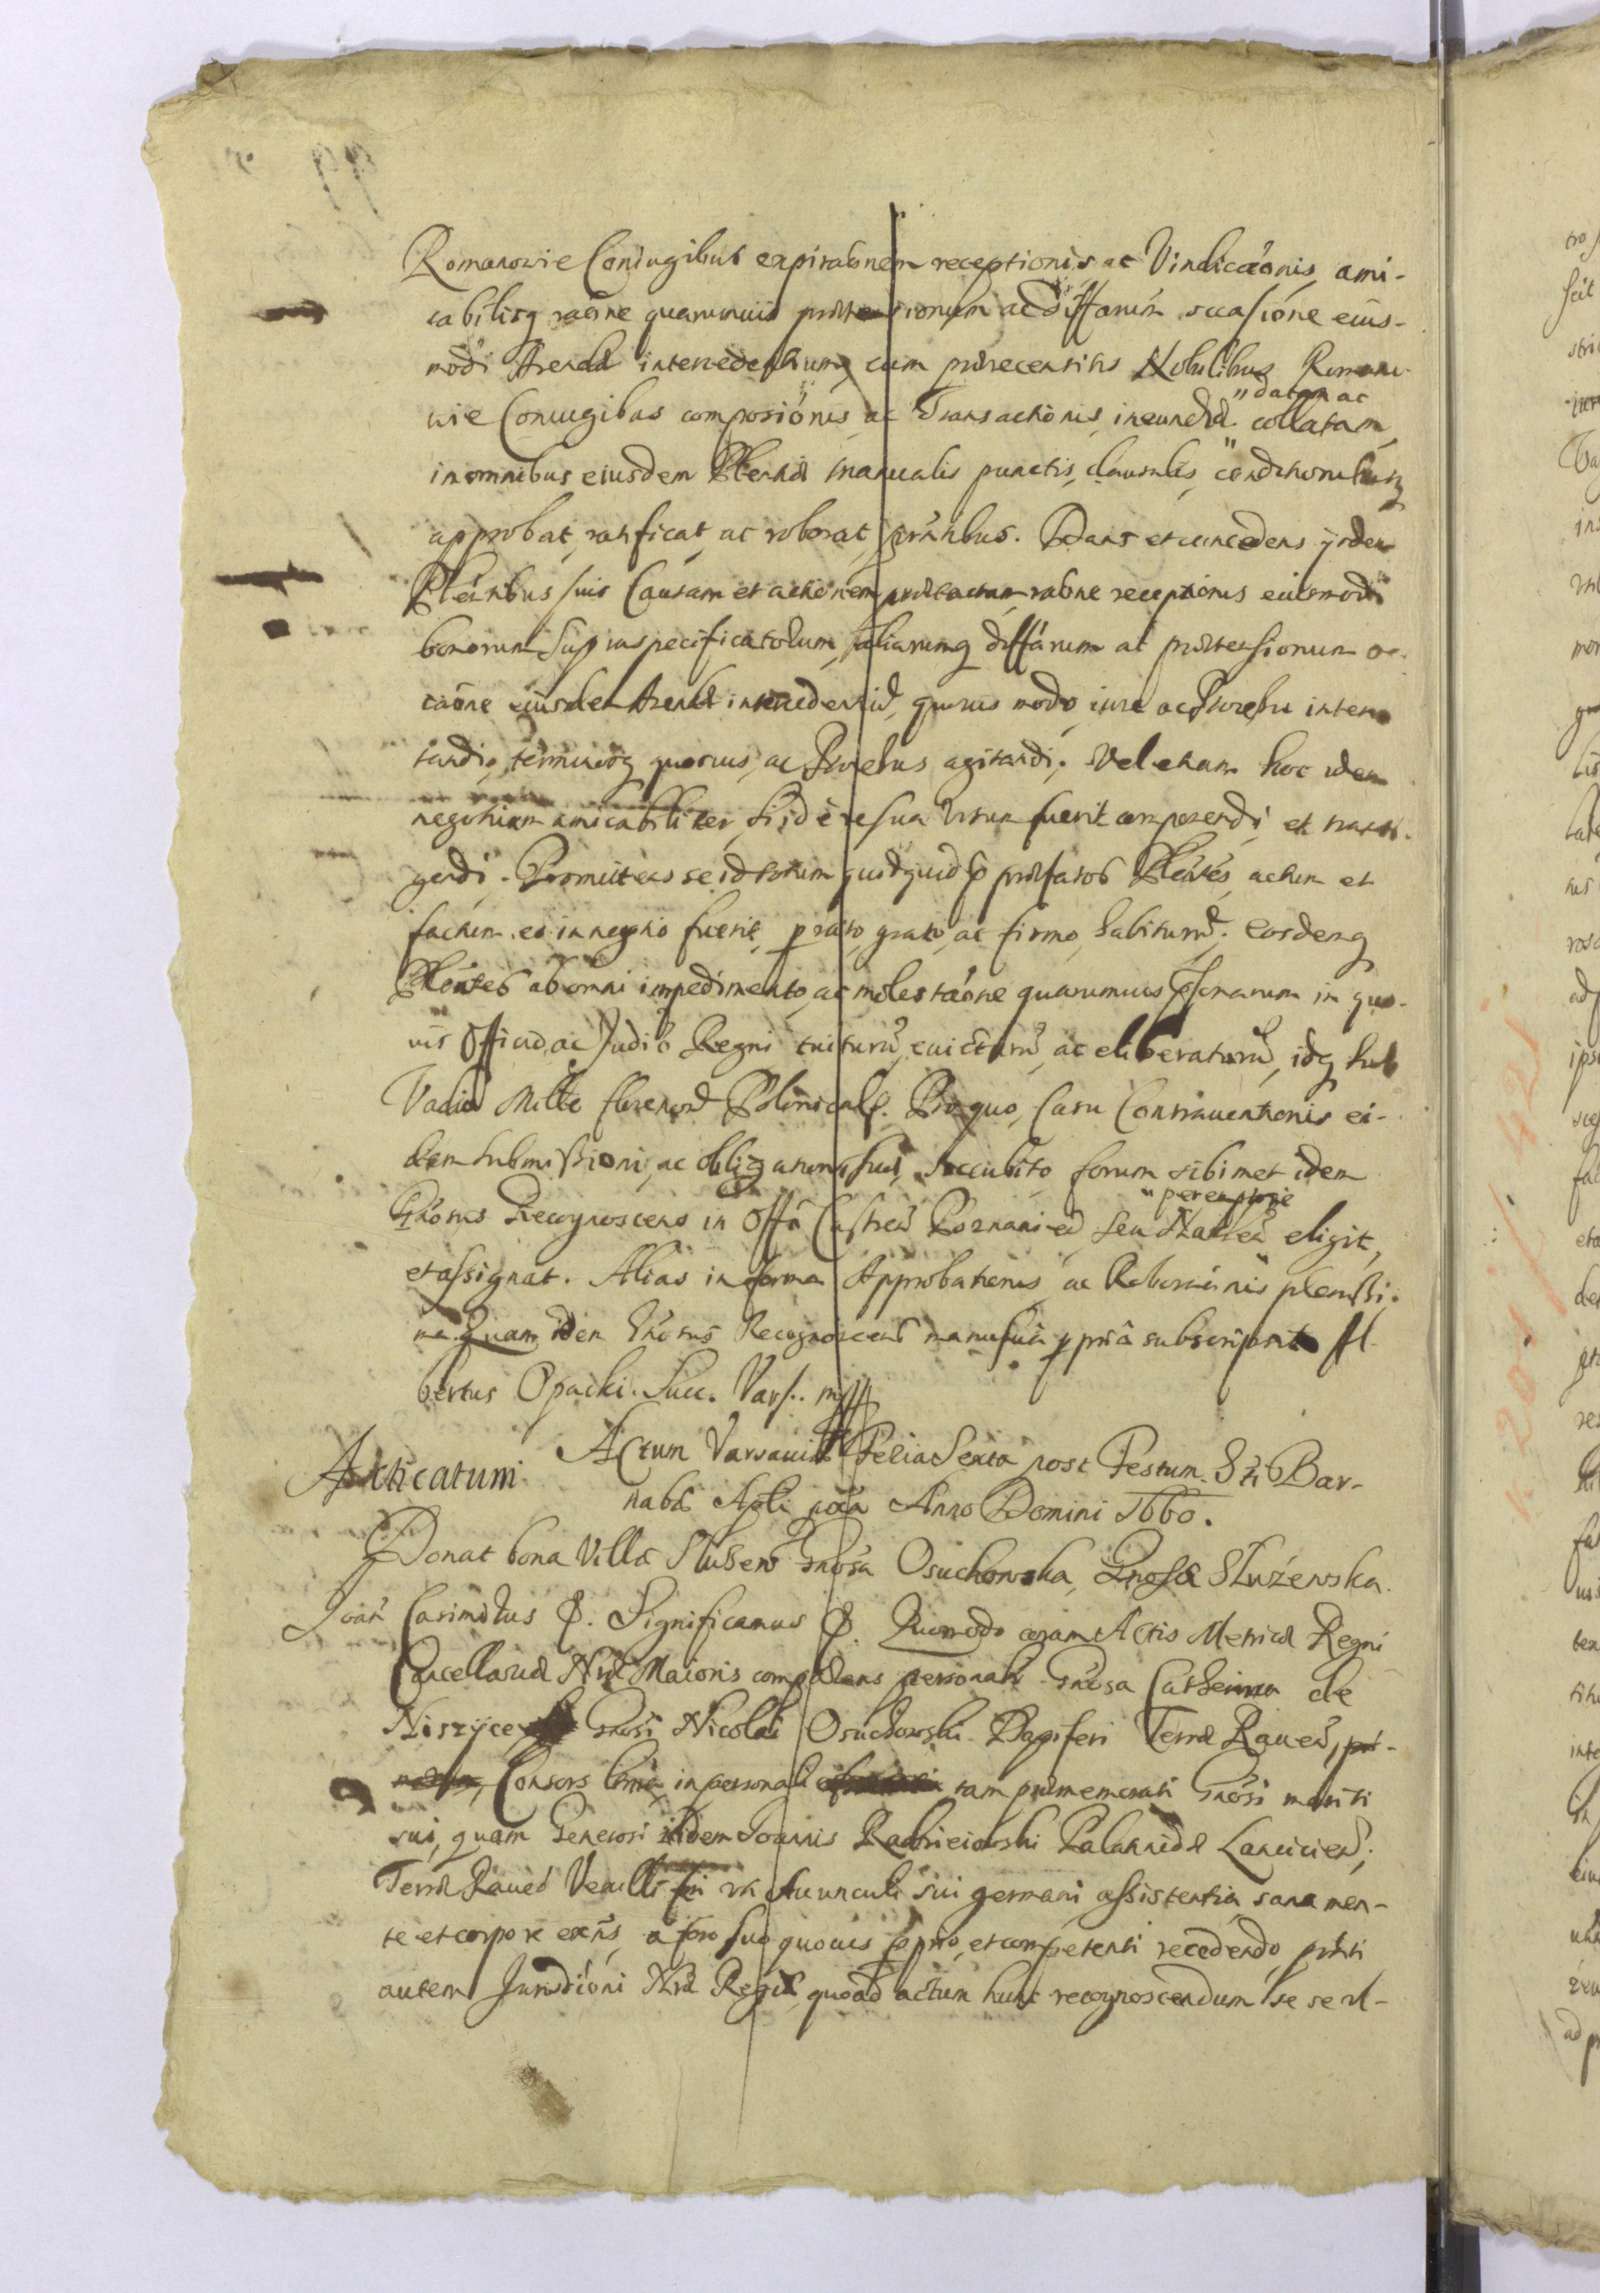 Romanowie Coniugibus expirationem receptionis ac Vindicaōnis, ami-
cabilisq raōne quarumuis prætensionum ac diffarum occasione eius-
modi Arendæ intercedentium, cum prærecensitis Nobilibus Romano-
wie Coniugibus composiōnis, ac Transactionis, ineundæ "datam ac collatam,
in omnibus eiusdem Plentiæ manualis punctis, clausulis, conditionibusq
approbat, ratificat, ac roborat, pntibus. Dans et concedens ijsdem
Plentibus suis Causam et actionem prætactam ratione receptionis eiusmodi
bonorum supraspecificatorum, aliarumq diffarum ac prætensionum oc-
caōne eiusdem Arendæ intercedentiū, quouis modo iure ac Processu inten-
tandi, terminosq quosuis, ac Processus agitandi. Vel etiam hoc idem
negotium amicabiliter, si id è re sua visum fuerit componendi et transi-
gendi. Promittens se id totum quidquid per præfatos Plentes, actum et
factum eo in negotio fuerit, pro rato, grato, ac firmo, habiturū. Eosdemq
Plentes ab omni impedimento, ac molestaōne quarumuis psonarum in quo-
uis Officio, ac Judio Regni tuiturū, euicturū, ac eliberaturū, idq sub
Vadio Mille florenorū Polonicaliū. Pro quo, Casu Contrauentionis ei-
dem submissioni, ac obligationi suæ, succubito forum sibimet idem
Gnosus Recognoscens in Offō Castren Posnanien seu Halicien "peremptorie eligit,
et assignat. Alias in forma Approbationis, ac Roboraōnis plenissi-
ma. Quam idem Gnosus Recognoscens manu suā ppriā subscripsit Al-
bertus Opacki. Succ. Vars. mpp
Acticatum Actum Varsauiæ Feria Sexta post Festum Sti Bar-
nabæ Apli pōxa Anno Domini 1660.
Donat bona Villæ Służew Gnosa Osuchowska, Gnosæ Służewska.
Joań Casimirus &. Significamus &. Quomodo coram Actis Metricæ Regni
Cancellariæ Nræ Maioris comparens personalr Gnosa Catherina de
Niszyce, Gnosi Nicolai Osuchowski Dapiferi Terræ Raueń,
Consors ltima, in personali tam præmemorati Gnosi mariti
sui, quam Generosi itidem Joannis Radzieiowski Palatinidæ Lanciciensis,
Terræ Raueń Vexillifri uti Auunculi sui germani assistentia, sana men-
te et corpore exns, a foro suo quouis pprio, et competenti recedendo, prnti
autem Jurisdiōni Nræ Regiæ, quoad actum hunc recognoscendum, se se vl-